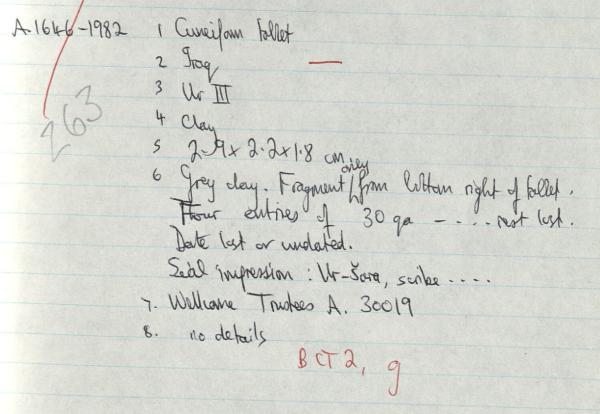 A.1646-1982 1 Cuneiform Tablet
2 Iraq
3 Ur III
263
4 Clay
5 2.9 x 2.2 x 1.8 cm
6 Grey clay. Fragment only from bottom right of tablet.
Flour entries of 30 qa - .... rest lost.
Date lost or undated.
Seal impression : Ur-Šara, scribe ....
7. Wellcome Trustees A. 30019
8. no details
BCT 2, 9